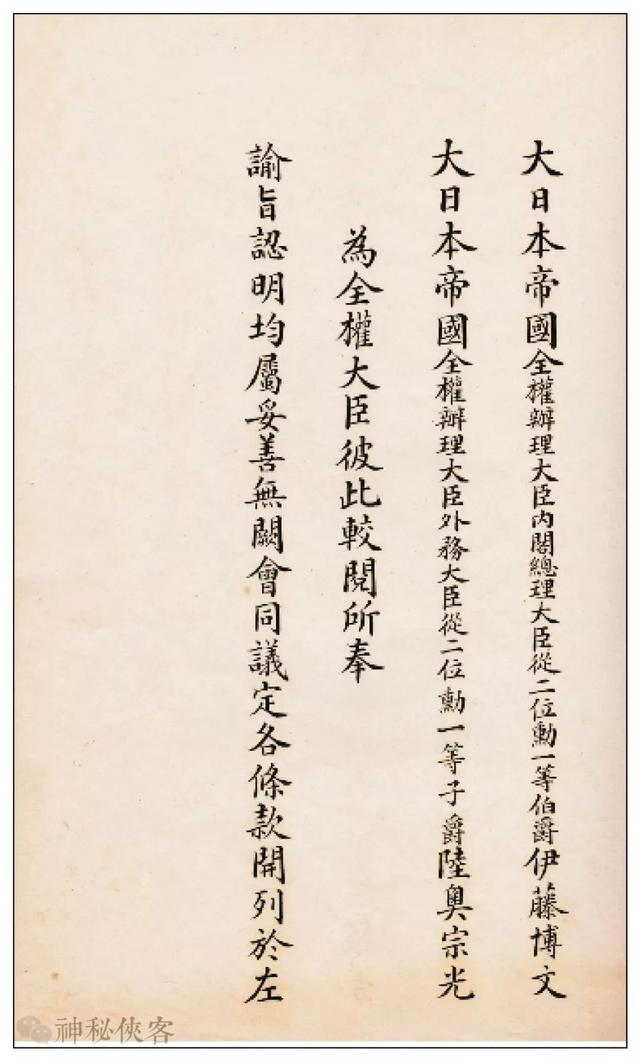 大日本帝國全權辦理大臣内閣總理大臣從二位勳一等伯爵伊藤博文
大日本帝國全權辦理大臣外務大臣從二位勳一等子爵陸奥宗光
為全權大臣彼此較閱所奉
諭旨認明均屬妥善無闕會同議定各條款開列於左
神秘俠客